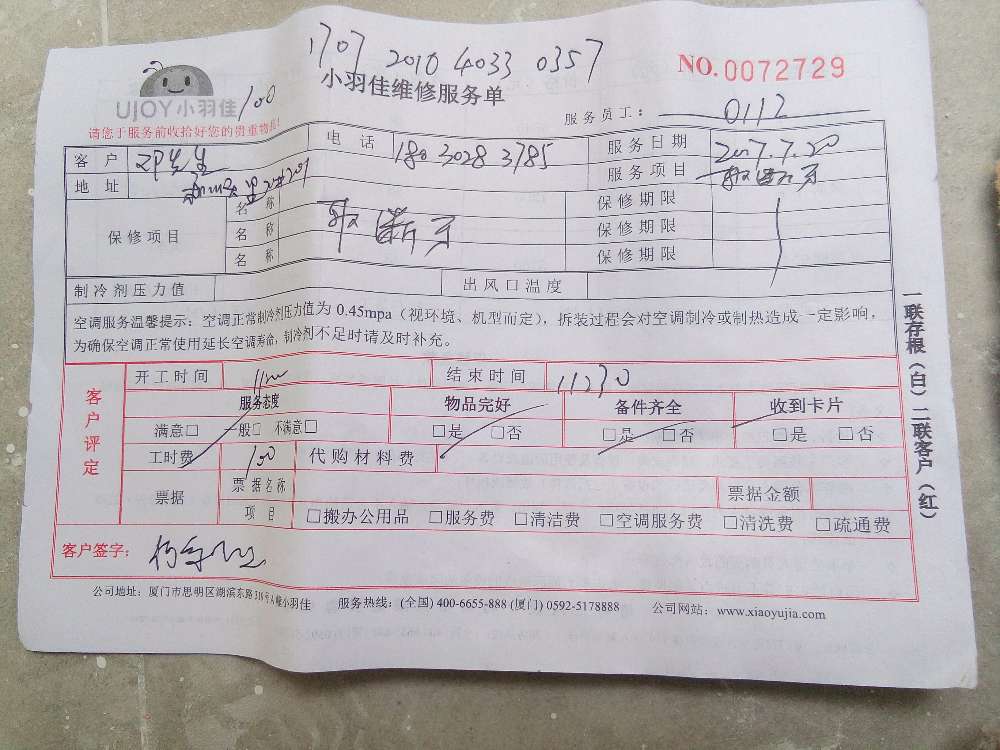 1707 2010 4033 0357
NO.0072729
UJOY小羽佳
100
小羽佳维修服务单
请您于服务前收拾好您的贵重物品!
服务员工: 0112
客户 邓先生 电话 180 3028 3785 服务日期 2017.7.20
地址 服务项目 取断牙
保修项目 名称 取断牙 保修期限
名称 保修期限
名称 保修期限
制冷剂压力值 出风口温度
空调服务温馨提示: 空调正常制冷剂压力值为 0.45mpa (视环境、机型而定), 拆装过程会对空调制冷或制热造成一定影响,
为确保空调正常使用延长空调寿命, 制冷剂不足时请及时补充。
客户评定
开工时间 结束时间 11230
服务态度 物品完好 备件齐全 收到卡片
满意□ 一般□ 不满意□ □是 □否 □是 □否 □是 □否
工时费 100 代购材料费
票据 票据名称 票据金额
项目 □搬办公用品 □服务费 □清洁费 □空调服务费 □清洗费 □疏通费
客户签字:
公司地址: 厦门市思明区湖滨东路319号A幢小羽佳 服务热线: (全国) 400-6655-888 (厦门) 0592-5178888 公司网站: www.xiaoyujia.com
一联存根(白)二联客户(红)